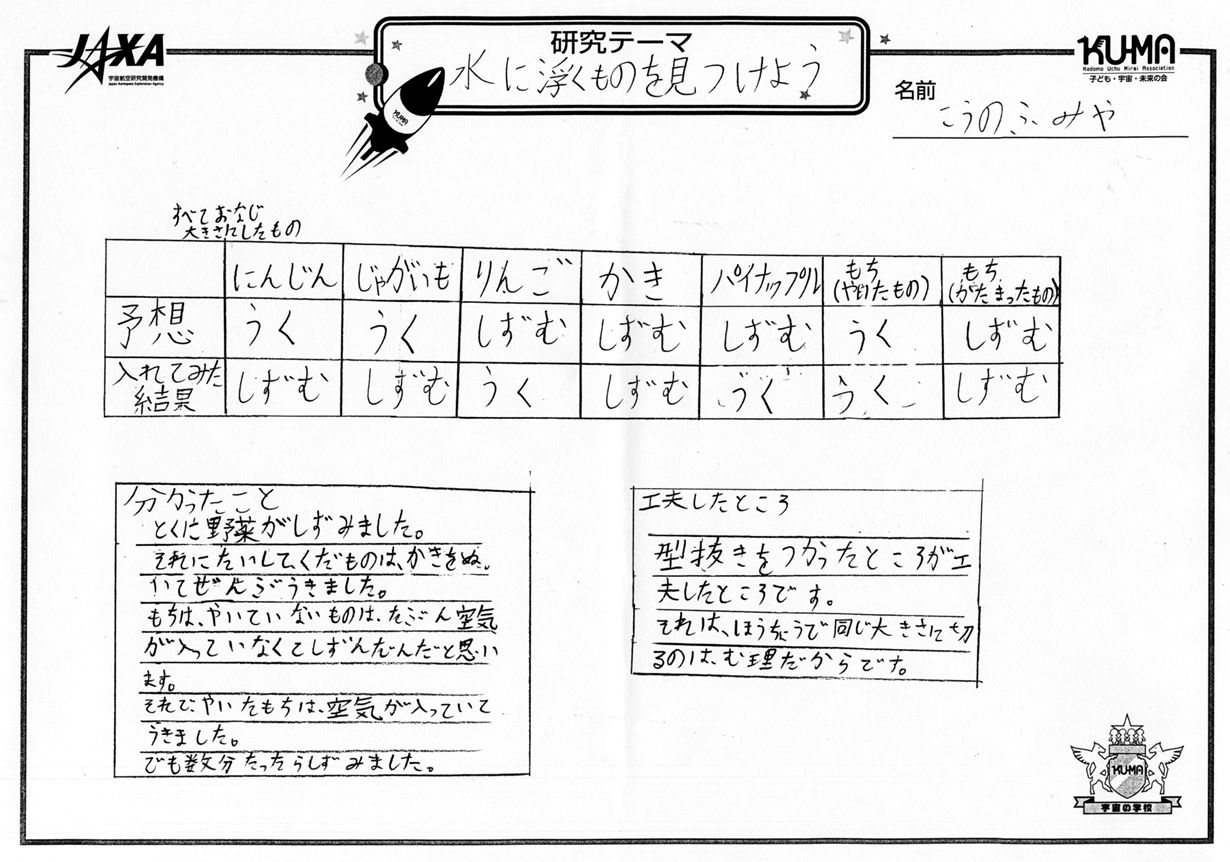 JAXA
宇宙航空研究開発機構
Japan Aerospace Exploration Agency
研究テーマ
水に浮くものを見つけよう
KUMA
KUMA
Kodomo Uchu Mirai Association
子ども・宇宙・未来の会
名前
こうのふみや
すべておなじ
大きさにしたもの
にんじん じゃがいも りんご かき パイナップル もち(やいたもの) もち(かたまったもの)
予想 うく うく しずむ しずむ しずむ うく しずむ
入れてみた結果 しずむ しずむ うく しずむ うく うく しずむ
分かったこと
とくに野菜がしずみました。
それにたいしてくだものは、かきをぬ
いてぜんぶうきました。
もちは、やいていないものは、たぶん空気
が入っていなくてしずんだんだと思い
ます。
それで、やいたもちは、空気が入っていて
うきました。
でも数分たったらしずみました。
工夫したところ
型抜きをつかったところが工
夫したところです。
それは、ほうちょうで同じ大きさに切
るのは、む理だからです。
KUMA
宇宙の学校